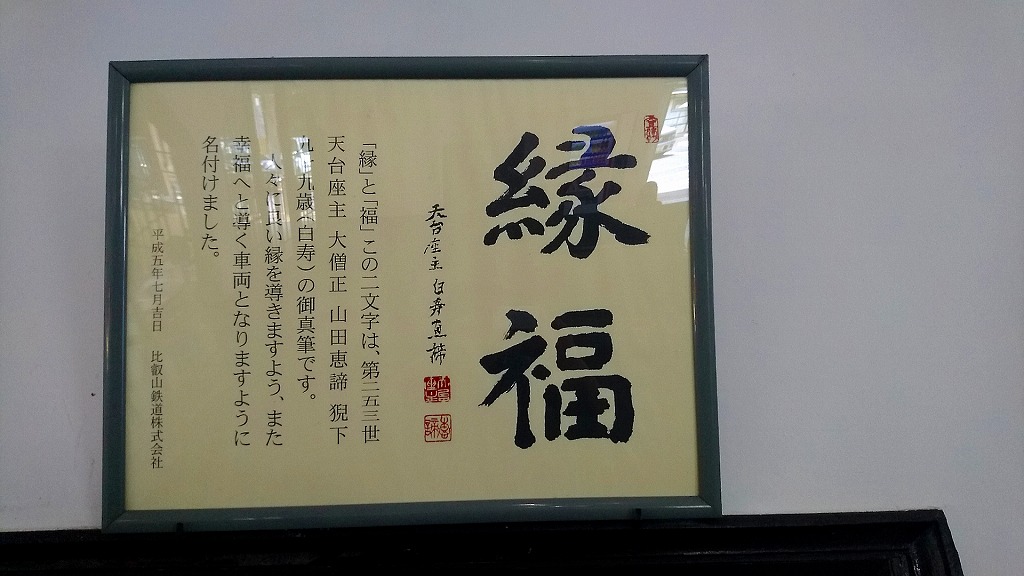 縁福
天台座主 白寿恵諦
「縁」と「福」この二文字は、第二五三世
天台座主 大僧正 山田恵諦 猊下
九十九歳(白寿)の御真筆です。
人々に良い縁を導きますよう、また
幸福へと導く車両となりますように
名付けました。
平成五年七月吉日 比叡山鉄道株式会社